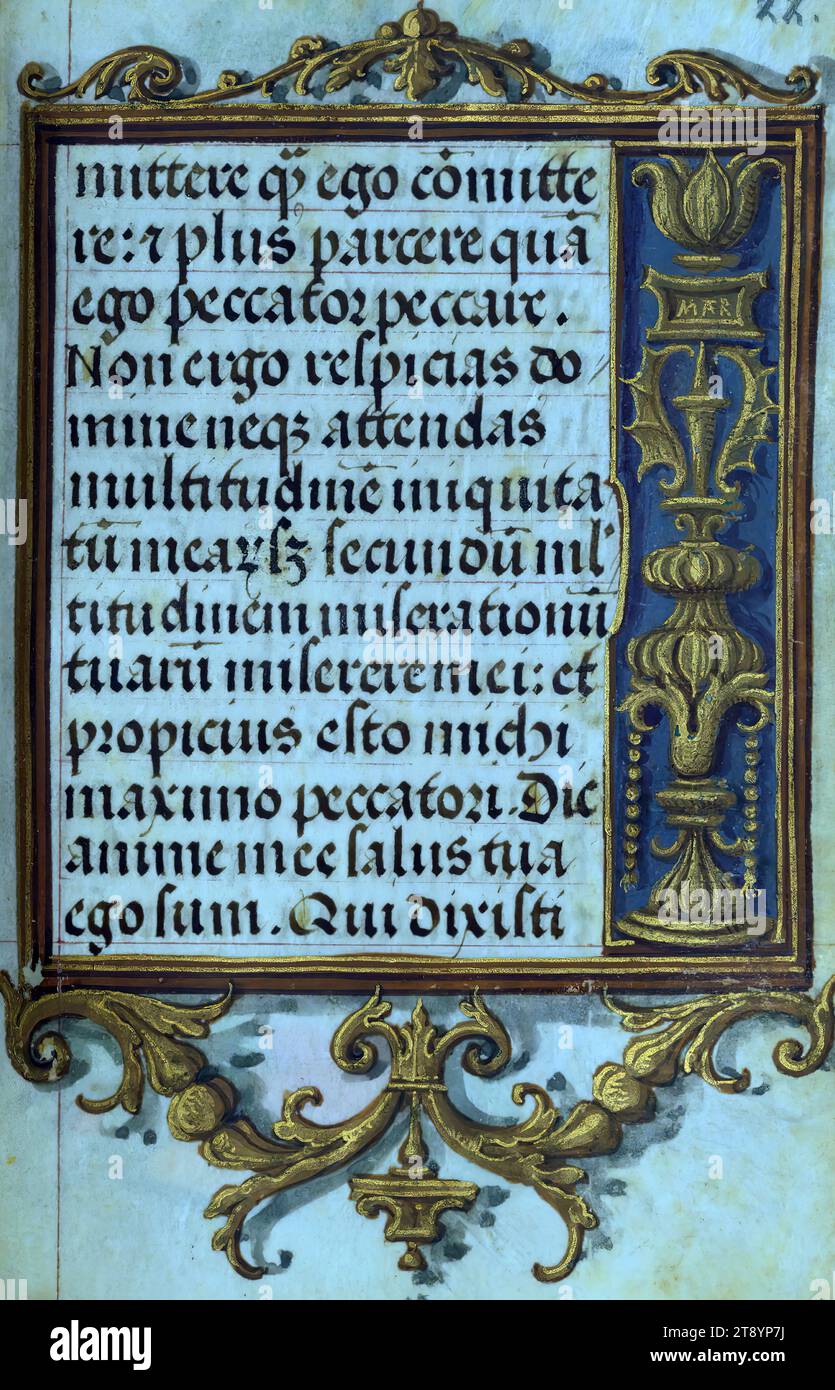 22.
mittere qȝ ego cōmitte
re: ⁊ plus parcere quā
ego peccator peccare.
Non ergo respicias do
mine neqȝ attendas
multitudinē iniquita
tū mearꝝ sȝ secundū ml'
titudinem miserationū
tuarū miserere mei: et
propicius esto michi
maximo peccatori. Dic
anime meę salus tua
ego sum. Qui dixisti
MAR
alamy
Image ID: 2T8YP7J
www.alamy.com